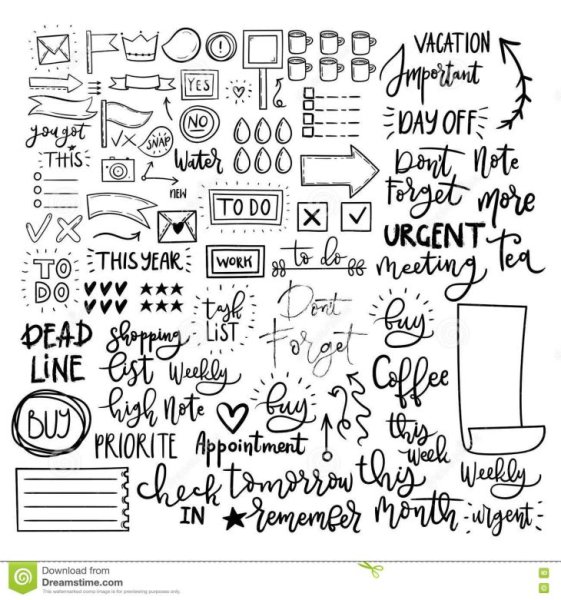 VACATION
Important
YES
NO
DAY OFF
you got
THIS
VX
SNAP
Water
new
Don't
Forget
Note
more
TO DO
URGENT
Tea
meeting
TO
DO
THIS YEAR
WORK
to do
task
LIST
Don't
Forget
buy
DEAD
LINE
Shopping
list
Weekly
Coffee
BUY
high Note
buy
this
week
PRIORITE
Appointment
Weekly
check
IN
tomorrow
remember
this
Month
urgent
Download from
Dreamstime.com
This watermarked comp image is for previewing purposes only.